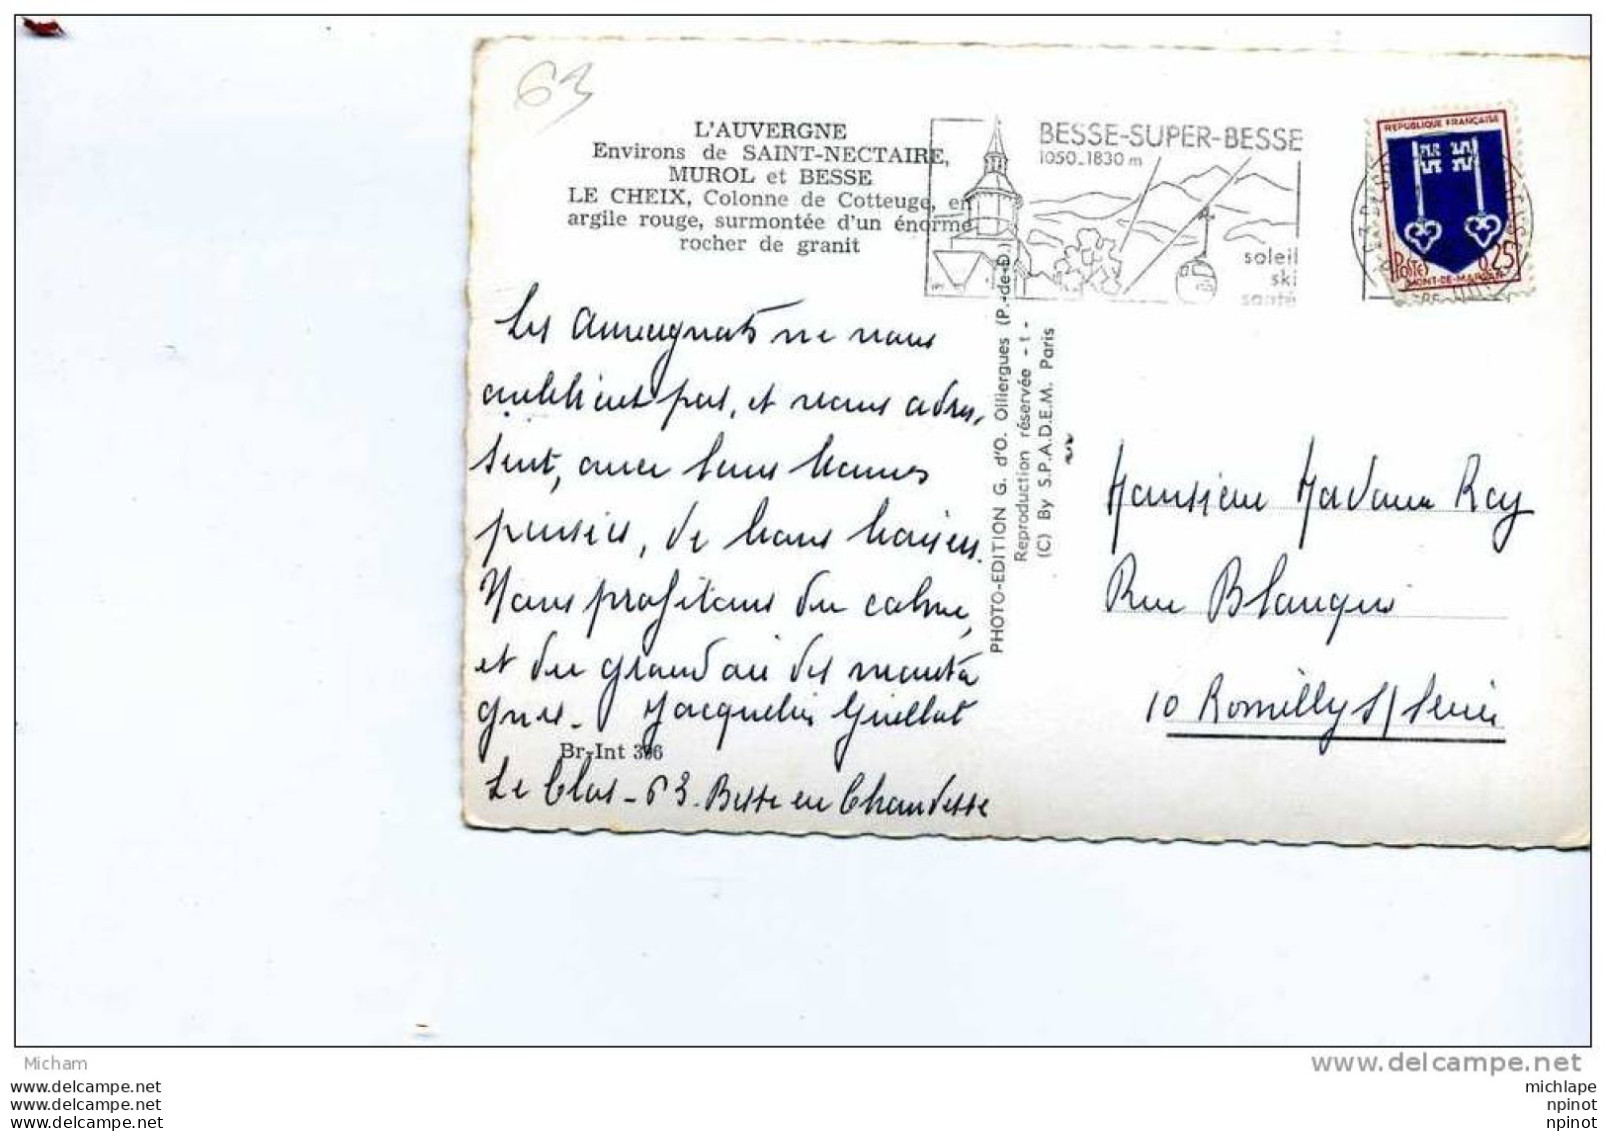 63
L'AUVERGNE
Environs de SAINT-NECTAIRE,
MUROL et BESSE
LE CHEIX, Colonne de Cotteuge, en
argile rouge, surmontée d'un énorme
rocher de granit
BESSE-SUPER-BESSE
1050-1830 m
soleil
ski
santé
REPUBLIQUE FRANÇAISE
POSTES 0,25
MONT-DE-MARSAN
Les Auvergnats ne vous
oublient pas, et vous adres,
sent, avec leurs bonnes
pensées, de bons baisers.
Nous profitons du calme,
et du grand air des monta
gnes. Jacqueline Guillot
Br-Int 396
Le Clos - 63. Besse en Chandesse
PHOTO-EDITION G. d'O. Olliergues (P.-de-D.)
Reproduction réservée - t -
(C) By S.P.A.D.E.M. Paris
Monsieur Madame Ray
Rue Blanqui
10 Romilly S/Seine
Micham
www.delcampe.net
michlape
npinot
npinot
www.delcampe.net
www.delcampe.net
www.delcampe.net